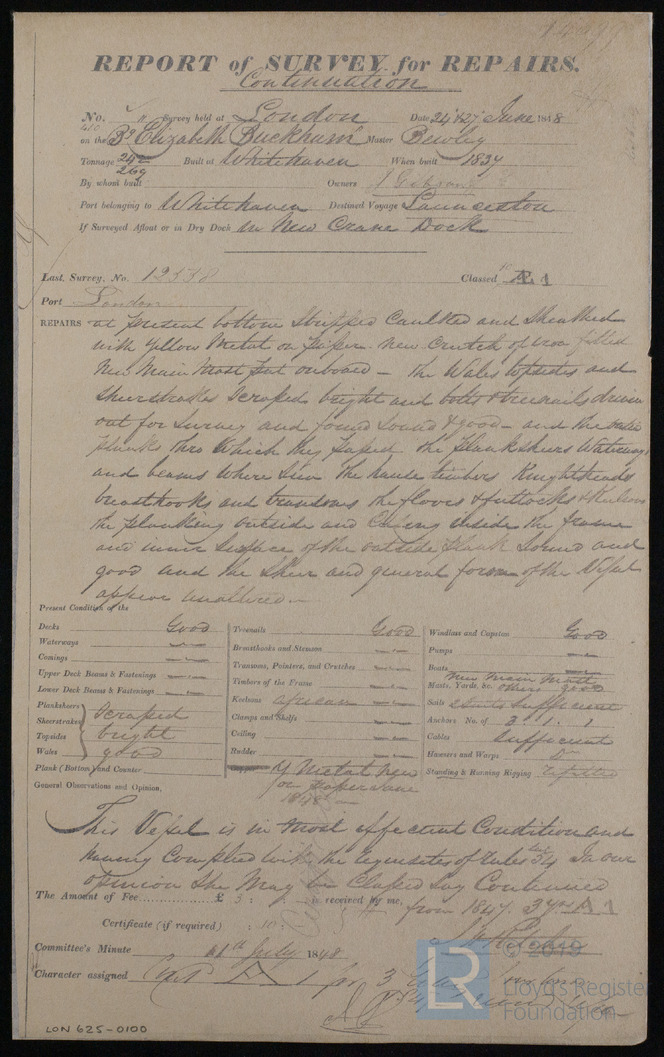 REPORT of SURVEY for REPAIRS.
Continuation
No. Survey held at London Date 24 & 27 June 1848
on the Bq Elizabeth Buckham Master Bewley
Tonnage 242 Built at Whitehaven When built 1837
269
By whom built Owners J Gibson
Port belonging to Whitehaven Destined Voyage Launceston
If Surveyed Afloat or in Dry Dock in New Crane Dock
Last Survey, No. 12338 Classed A 1
Port London
REPAIRS at present bottom Stripped Caulked and Sheathed
with Yellow Metal on paper. New Crutch of iron fitted
New Main Mast put onboard – the Wales topsides and
Sheerstrakes Scraped bright and bolts & treenails driven
out for Survey and found Sound & good – and the
planks thro which they paped the plankshears Waterways
and beams where seen the hause timbers Knightheads
breasthooks and transoms the floors & futtocks & Keelsons
the planking outside and Ceiling inside the frame
and inner Surface of the outside plank Sound and
good and the Sheer and general form of the Vessel
appear unaltered –
Present Condition of the
Decks Good
Waterways
Comings
Upper Deck Beams & Fastenings
Lower Deck Beams & Fastenings
Planksheers
Sheerstrakes
Topsides
Wales
scraped
bright
good
Plank (Bottom) and Counter
Treenails Good
Breasthooks and Stemson
Transoms, Pointers, and Crutches
Timbers of the Frame
Keelsons african
Clamps and Shelfs
Ceiling
Rudder
Copper Y Metal New
on paper June
1848 –
Windlass and Capstan Good
Pumps
Boats
New Main Mast
Masts, Yards, &c. others good
Sails Sufficient
Anchors No. of 3. 1. 1
Cables Sufficient
Hawsers and Warps Do
Standing & Running Rigging refitted
General Observations and Opinion,
This Vessel is in most efficient Condition and
having Complied with the requisites of rules 54 In our
opinion She May be Classed say Continued
from 1847. 3 yrs A 1
The Amount of Fee £ 3 : : is received by me,
Certificate (if required) : 10 :
Committee's Minute 1848
Character assigned
LON 625-0100
© 2019
LR
Lloyd's Register
Foundation